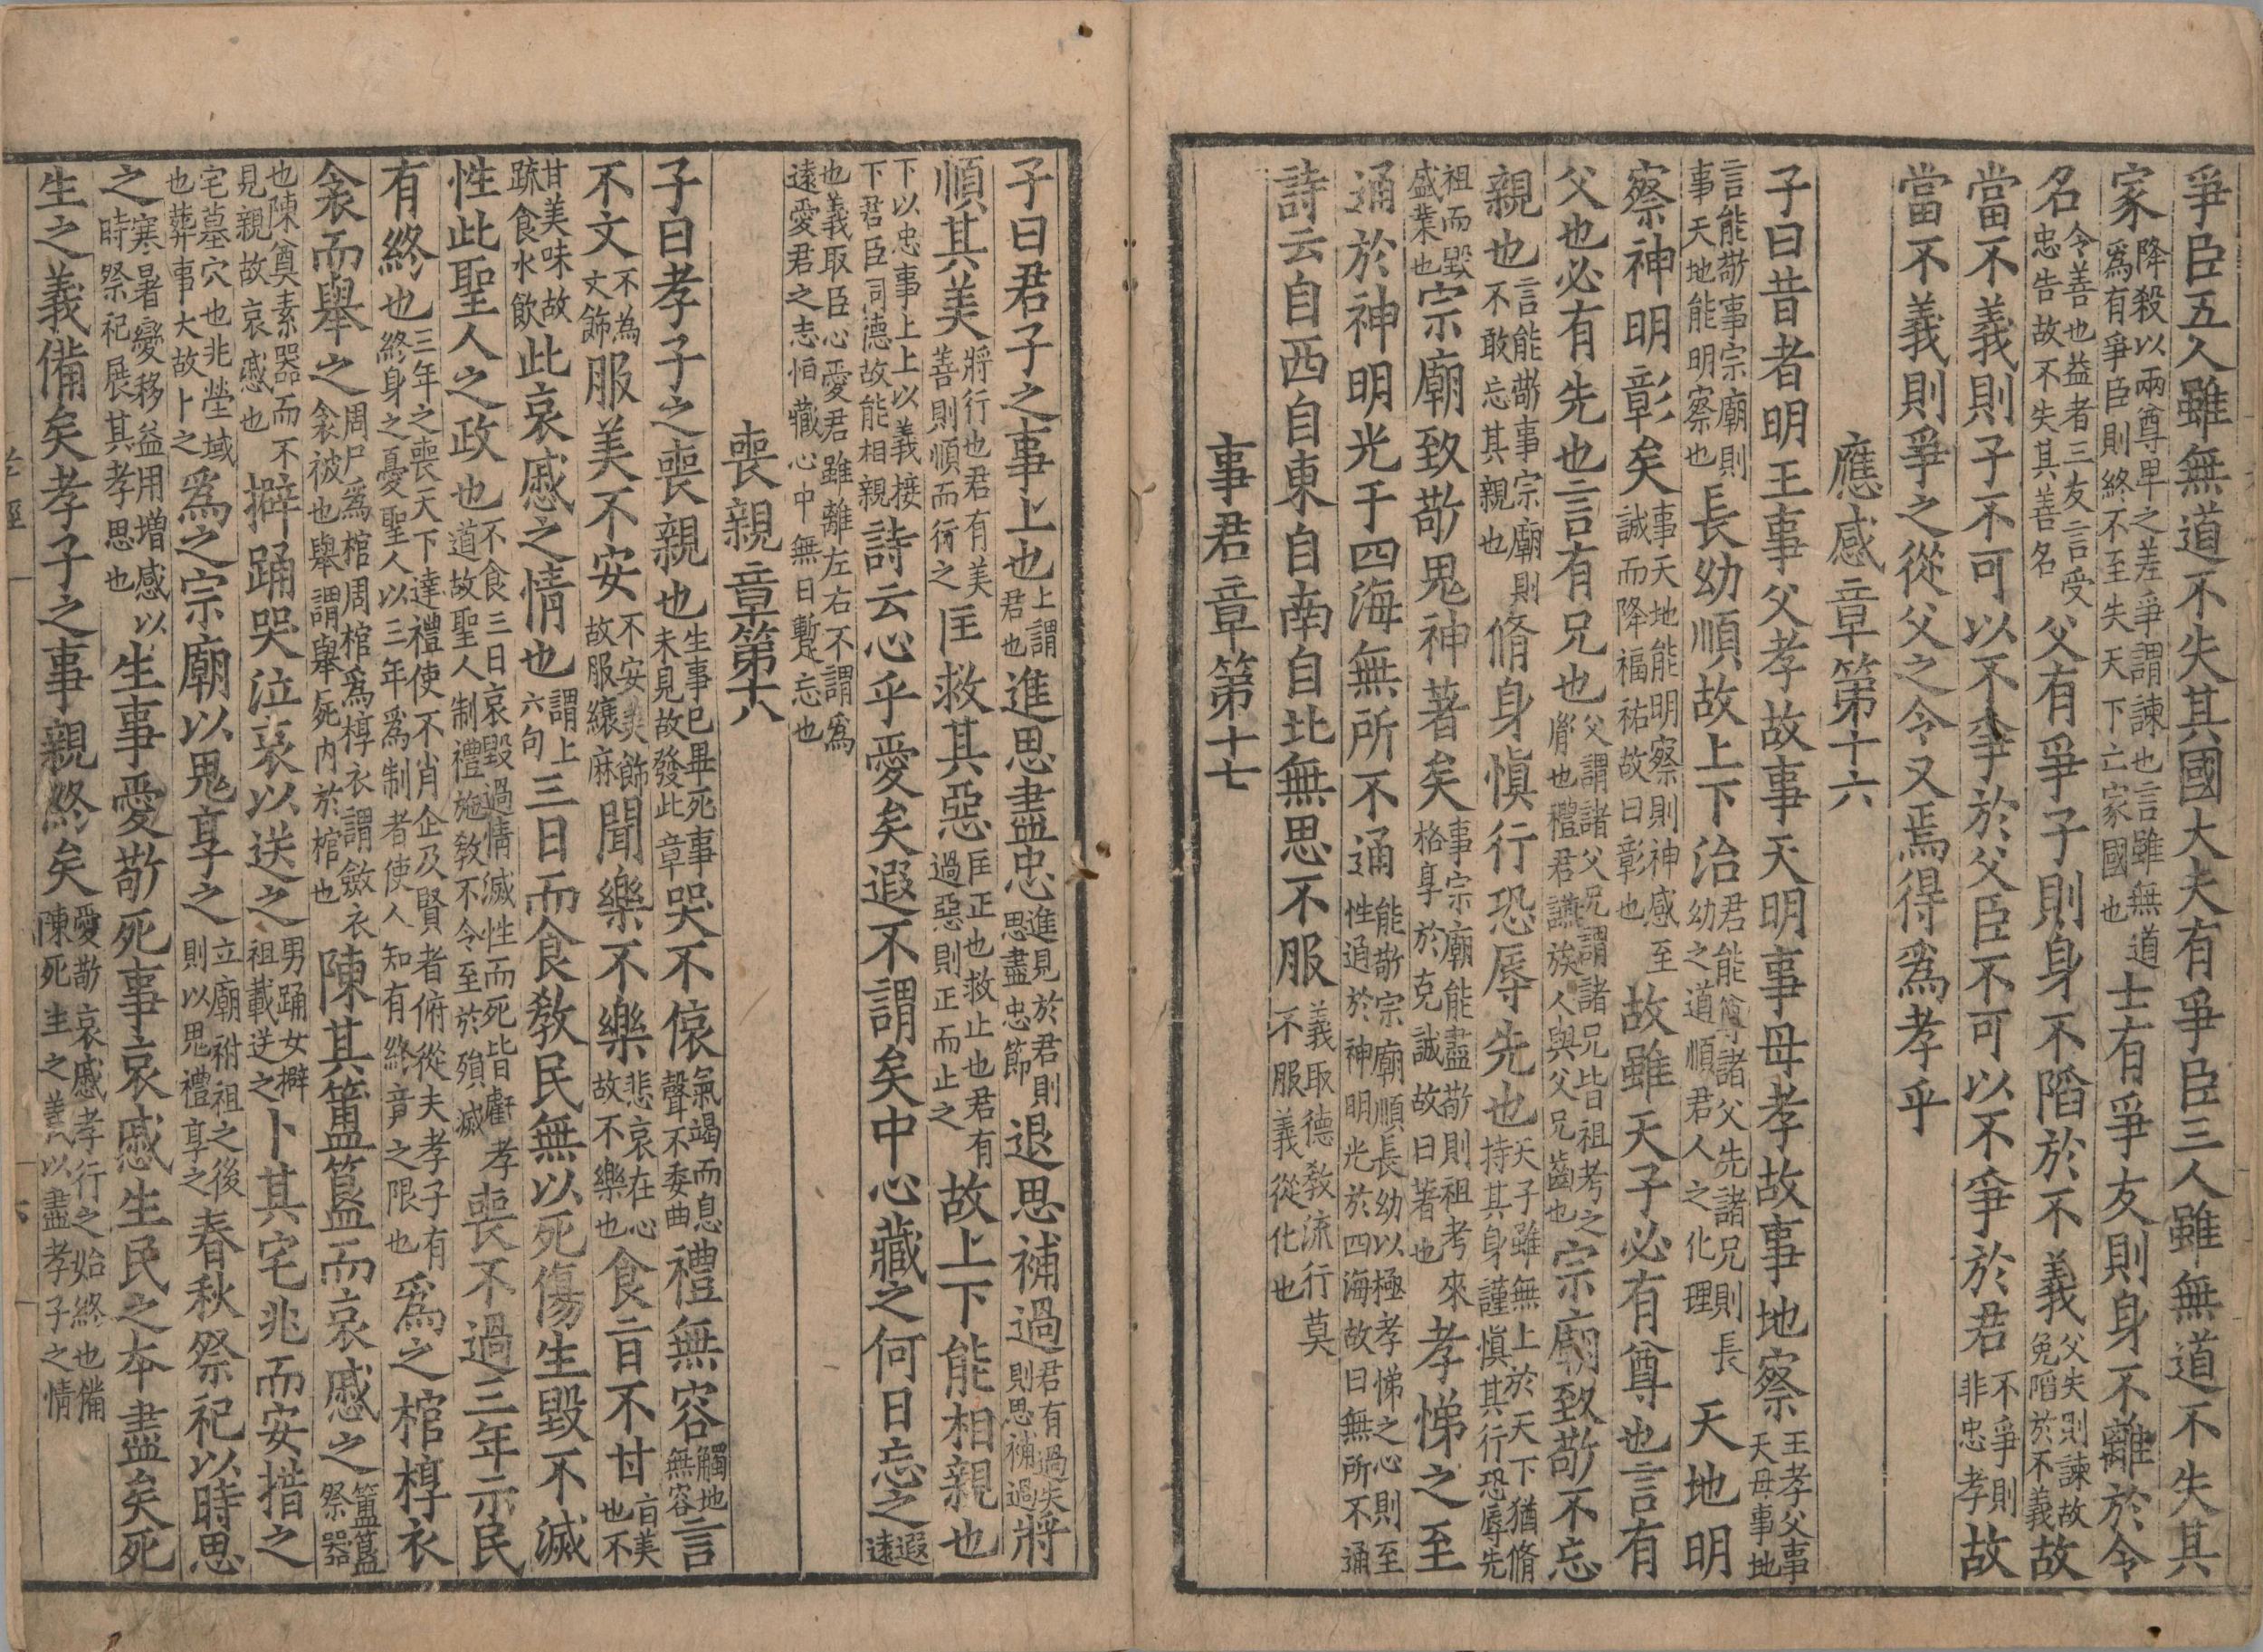 爭臣五人雖無道不失其國大夫有爭臣三人雖無道不失其
家降殺以兩尊卑之差爭謂諫也言雖無道爲有爭臣則終不至失天下亡家國也士有爭友則身不離於令
名令善也益者三友言受忠告故不失其善名父有爭子則身不陷於不義父失則諫故免陷於不義故
當不義則子不可以不爭於父臣不可以不爭於君不爭則非忠孝故
當不義則爭之從父之令又焉得爲孝乎
應感章第十六
子曰昔者明王事父孝故事天明事母孝故事地察王孝父事天母事地
言能敬事宗廟則事天地能明察也長幼順故上下治君能尊諸父先諸兄則長幼之道順君人之化理天地明
察神明彰矣事天地能明察則神感至誠而降福祐故曰彰也故雖天子必有尊也言有
父也必有先也言有兄也父謂諸父兄謂諸兄皆祖考之胤也禮君讌族人與父兄齒也宗廟致敬不忘
親也言能敬事宗廟則不敢忘其親也脩身愼行恐辱先也天子雖無上於天下猶脩持其身謹愼其行恐辱先
祖而毀盛業也宗廟致敬鬼神著矣事宗廟能盡敬則祖考來格享於克誠故曰著也孝悌之至
通於神明光于四海無所不通能敬宗廟順長幼以極孝悌之心則至性通於神明光於四海故曰無所不通
詩云自西自東自南自北無思不服義取德敎流行莫不服義從化也
事君章第十七
子曰君子之事上也上謂君也進思盡忠進見於君則思盡忠節退思補過君有過失則思補過將
順其美將行也君有美善則順而行之匡救其惡匡正也救止也君有過惡則正而止之故上下能相親也
下以忠事上上以義接下君臣同德故能相親詩云心乎愛矣遐不謂矣中心藏之何日忘之遐遠
也義取臣心愛君雖離左右不謂爲遠愛君之志恒藏心中無日暫忘也
喪親章第十八
子曰孝子之喪親也生事已畢死事未見故發此章哭不偯氣竭而息聲不委曲禮無容觸地無容言
不文不為文飾服美不安不安美飾故服縗麻聞樂不樂悲哀在心故不樂也食旨不甘旨美也不
甘美味故疏食水飲此哀慼之情也謂上六句三日而食敎民無以死傷生毀不滅
性此聖人之政也不食三日哀毀過情滅性而死皆虧孝道故聖人制禮施敎不令至於殞滅喪不過三年示民
有終也三年之喪天下達禮使不肖企及賢者俯從夫孝子有終身之憂聖人以三年爲制者使人知有終竟之限也爲之棺椁衣
衾而舉之周尸爲棺周棺爲椁衣謂斂衣衾被也舉謂舉死內於棺也陳其簠簋而哀慼之簠簋祭器
也陳奠素器而不見親故哀慼也擗踊哭泣哀以送之男踊女擗祖載送之卜其宅兆而安措之
宅墓穴也兆塋域也葬事大故卜之爲之宗廟以鬼享之立廟祔祖之後則以鬼禮享之春秋祭祀以時思
之寒暑變移益用增感以時祭祀展其孝思也生事愛敬死事哀慼生民之本盡矣死
生之義備矣孝子之事親終矣愛敬哀慼孝行之始終也備陳死生之義以盡孝子之情